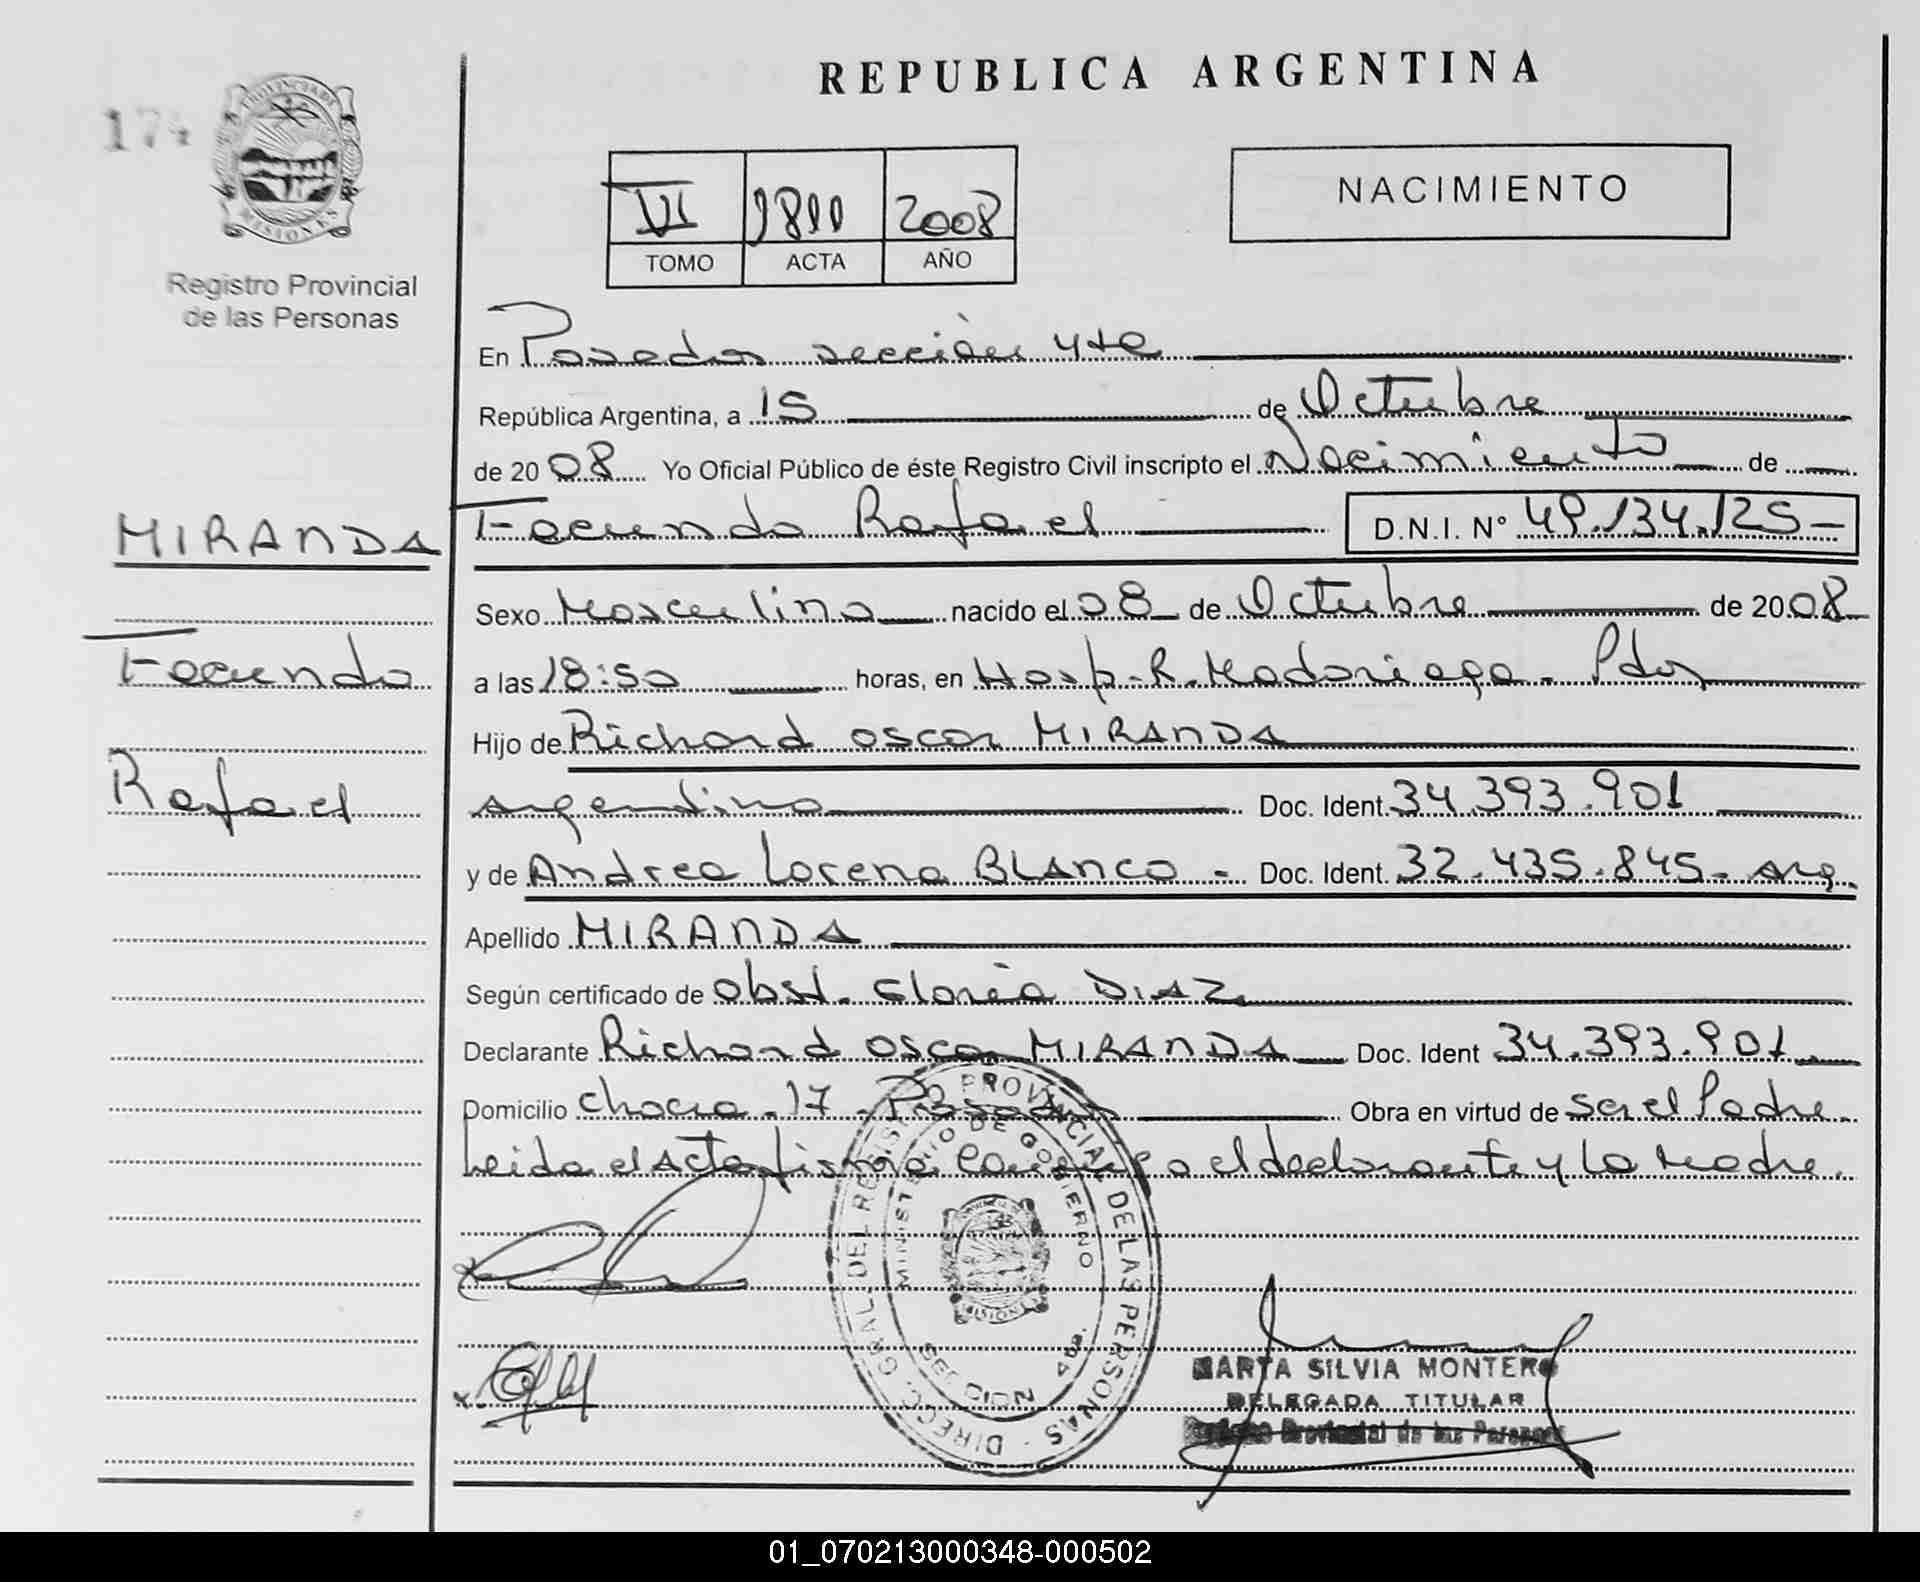 REPUBLICA ARGENTINA
174
PROVINCIA DE
MISIONES
Registro Provincial
de las Personas
VI 1811 2008
TOMO ACTA AÑO
NACIMIENTO
En Posadas sección 4ta
República Argentina, a 15 de Octubre
de 2008 Yo Oficial Público de éste Registro Civil inscripto el Nacimiento de
Facundo Rafael D.N.I. N° 49.134.125-
MIRANDA
Facundo
Rafael
Sexo Masculino nacido el 08 de Octubre de 2008
a las 18:50 horas, en Hosp. R. Madariaga - Pdas
Hijo de Richard Oscar MIRANDA
argentino Doc. Ident. 34.393.901
y de Andrea Lorena BLANCO - Doc. Ident. 32.435.845- arg.
Apellido MIRANDA
Según certificado de Obst. Gloria DIAZ
Declarante Richard Oscar MIRANDA Doc. Ident 34.393.901
Domicilio chacra 17 - Posadas Obra en virtud de ser el Padre.
Leida el Acta firma conmigo el declarante y la Madre.
DIRECC. GRAL. DEL REGIST. PROVINCIAL DE LAS PERSONAS
MINISTERIO DE GOBIERNO
MISIONES
SECCION 4ta.
MARTA SILVIA MONTERO
DELEGADA TITULAR
Registro Provincial de las Personas
01_070213000348-000502